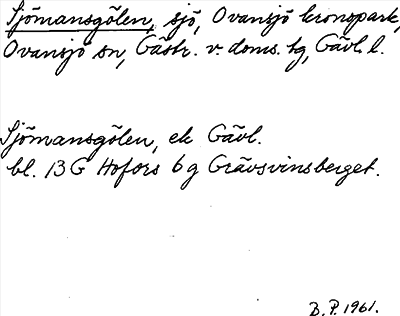 Sjömansgölen, sjö, Ovansjö kronopark,
Ovansjö sn, Gästr. v. doms. hg, Gävl. l.
Sjömansgölen, ek Gävl.
bl. 13 G Hofors 6 g Grävsvinsberget.
B. P. 1961.